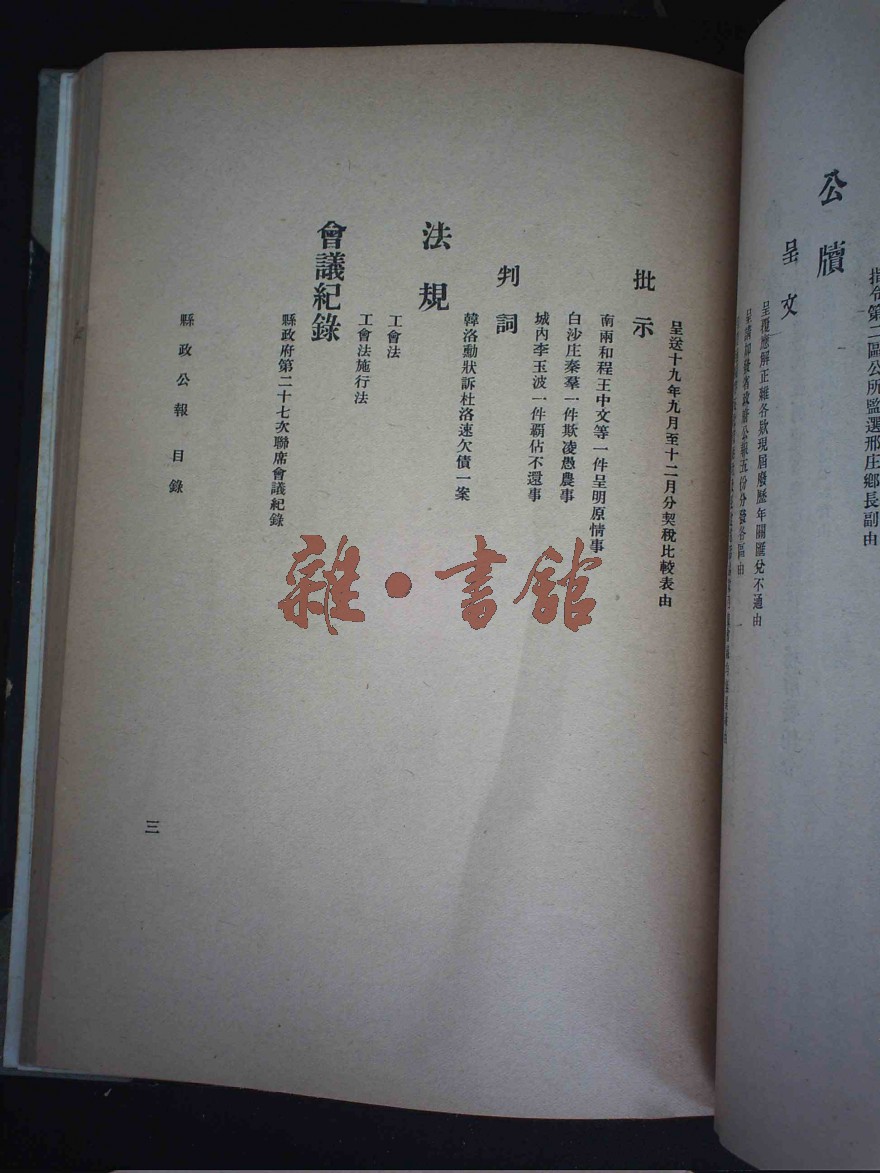 指令第二區公所監選邢庄鄉長副由
公牘
呈文
呈覆應解正雜各款現屆廢歷年關匯兌不通由
呈請加發省政府公報五份分發各區由
呈送十九年九月至十二月分契稅比較表由
批示
南兩和程王中文等一件呈明原情事
白沙庄秦羣一件欺凌愚農事
城內李玉波一件霸佔不還事
判詞
韓洛勳狀訴杜洛速欠債一案
法規
工會法
工會法施行法
會議紀錄
縣政府第二十七次聯席會議紀錄
縣政公報 目錄
三
雜·書館